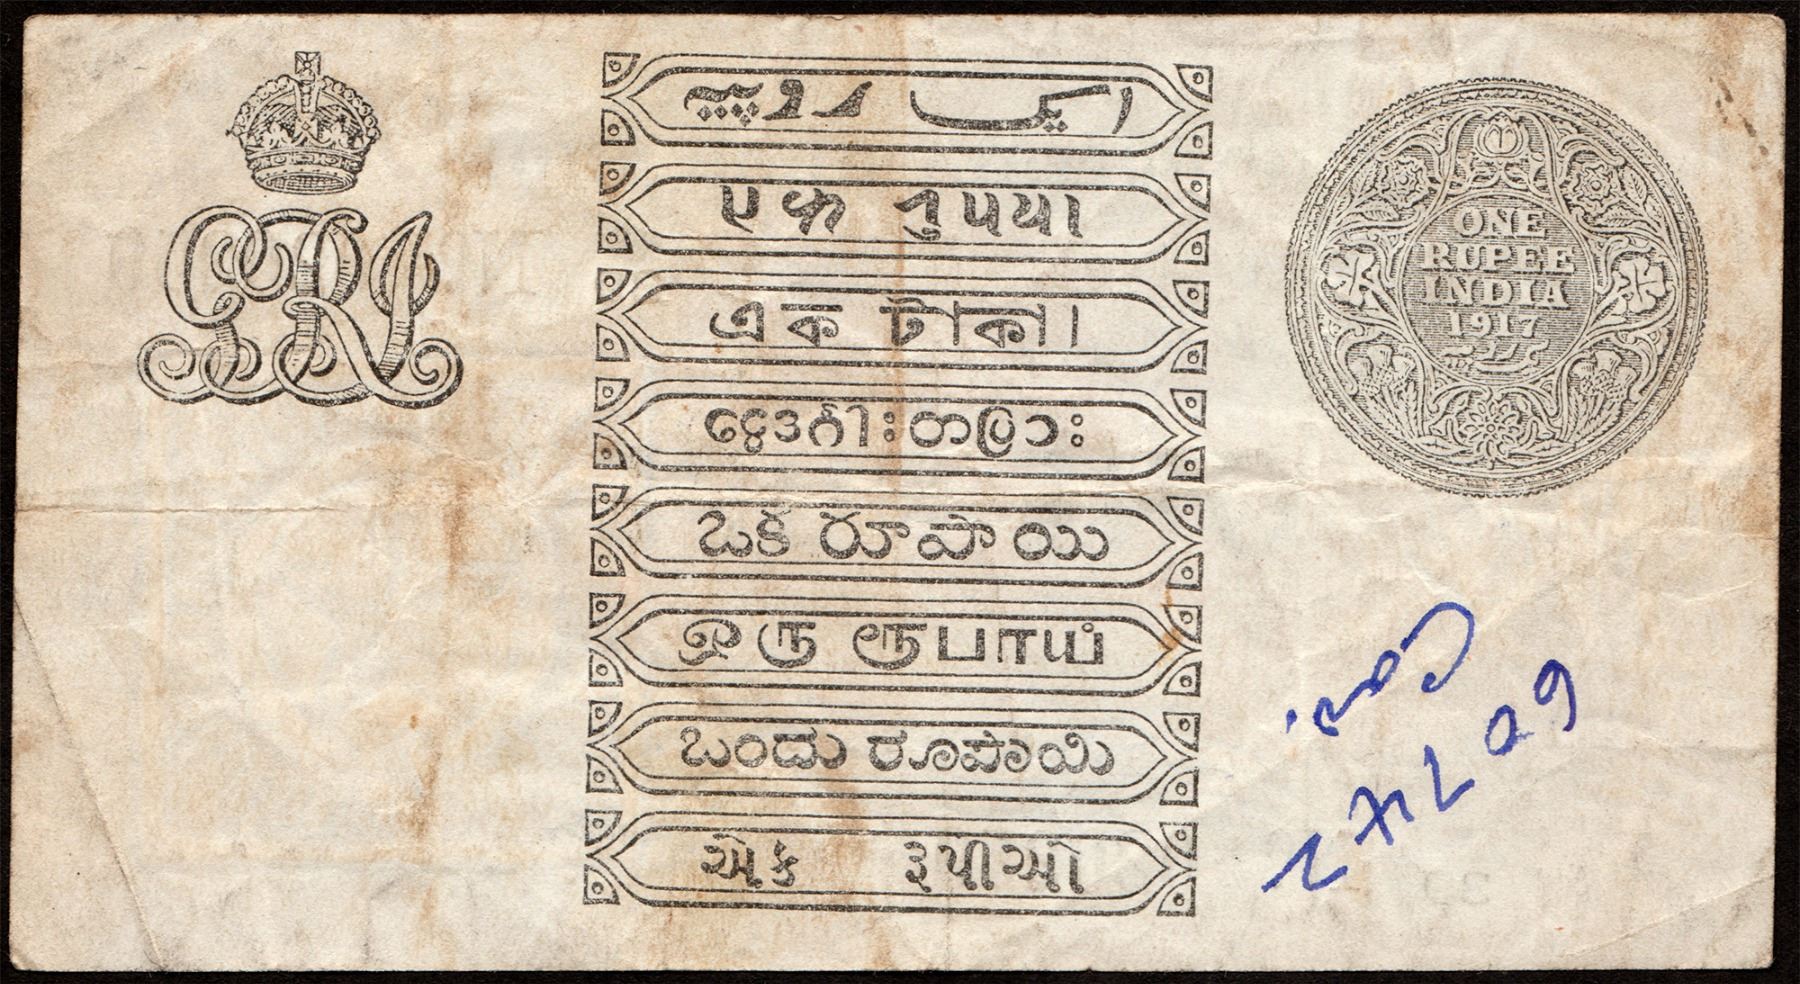 GRI
ایک روپیہ
𑂉𑂍 𑂩𑂳𑂣𑂨𑂰
এক টাকা।
ငွေဒင်္ဂါးတပြား
ఒక రూపాయి
ஒரு ரூபாய்
ಒಂದು ರೂಪಾಯಿ
એક રૂપીઓ
ONE
RUPEE
INDIA
1917
یک روپیہ